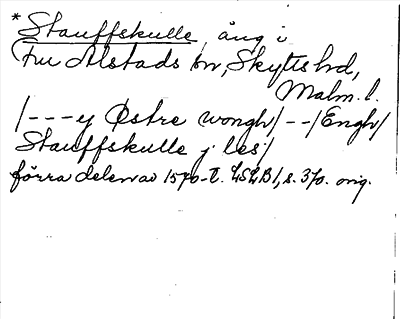 * Stauffskulle, äng i
Fru Alstads sn, Skytts hd,
Malm. l.
/---y Østre wongh/--/Engh/
Stauffskulle j les/
förra delen av 1570-t. LSLB1, s. 370. orig.